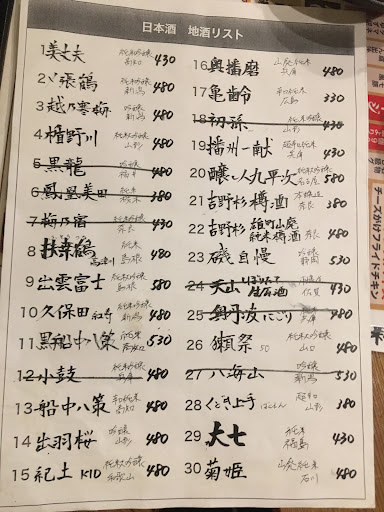 日本酒 地酒リスト
1 美丈夫 純米吟醸 高知 430
2 〆張鶴 純米吟醸 新潟 480
3 越乃寒梅 吟醸 新潟 480
4 楯野川 純米吟醸 山形 480
5 黒龍 吟醸 福井 480
6 鳳凰美田 純米 栃木 480
7 梅乃宿 純米吟醸 奈良 430
8 扶桑鶴 純米 島根 480
9 出雲富士 純米吟醸 島根 480
10 久保田 純米吟醸 新潟 480
11 黒船中八策 高知 530
12 小鼓 純米吟醸 兵庫 480
13 船中八策 高知 480
14 出羽桜 吟醸 山形 480
15 紀土 KID 純米大吟醸 和歌山 480
16 奥播磨 山廃純米 兵庫 480
17 亀齢 広島 330
18 初孫 山形 435
19 播州一献 超辛純米 兵庫 430
20 醸し人九平次 純米大吟醸 名古屋 580
21 吉野杉樽酒 奈良 430
22 吉野杉 雄町山廃 純米樽酒 奈良 480
23 磯自慢 吟醸 静岡 530
24 天山 しぼりたて 生原酒 佐賀 430
25 奥丹波にごり 兵庫 480
26 獺祭 50 純米大吟醸 山口 480
27 八海山 吟醸 新潟 530
28 くどき上手 ばくれん 超辛 山形 380
29 大七 純米 福島 430
30 菊姫 山廃純米 石川 480
チーズがけフライドチキン